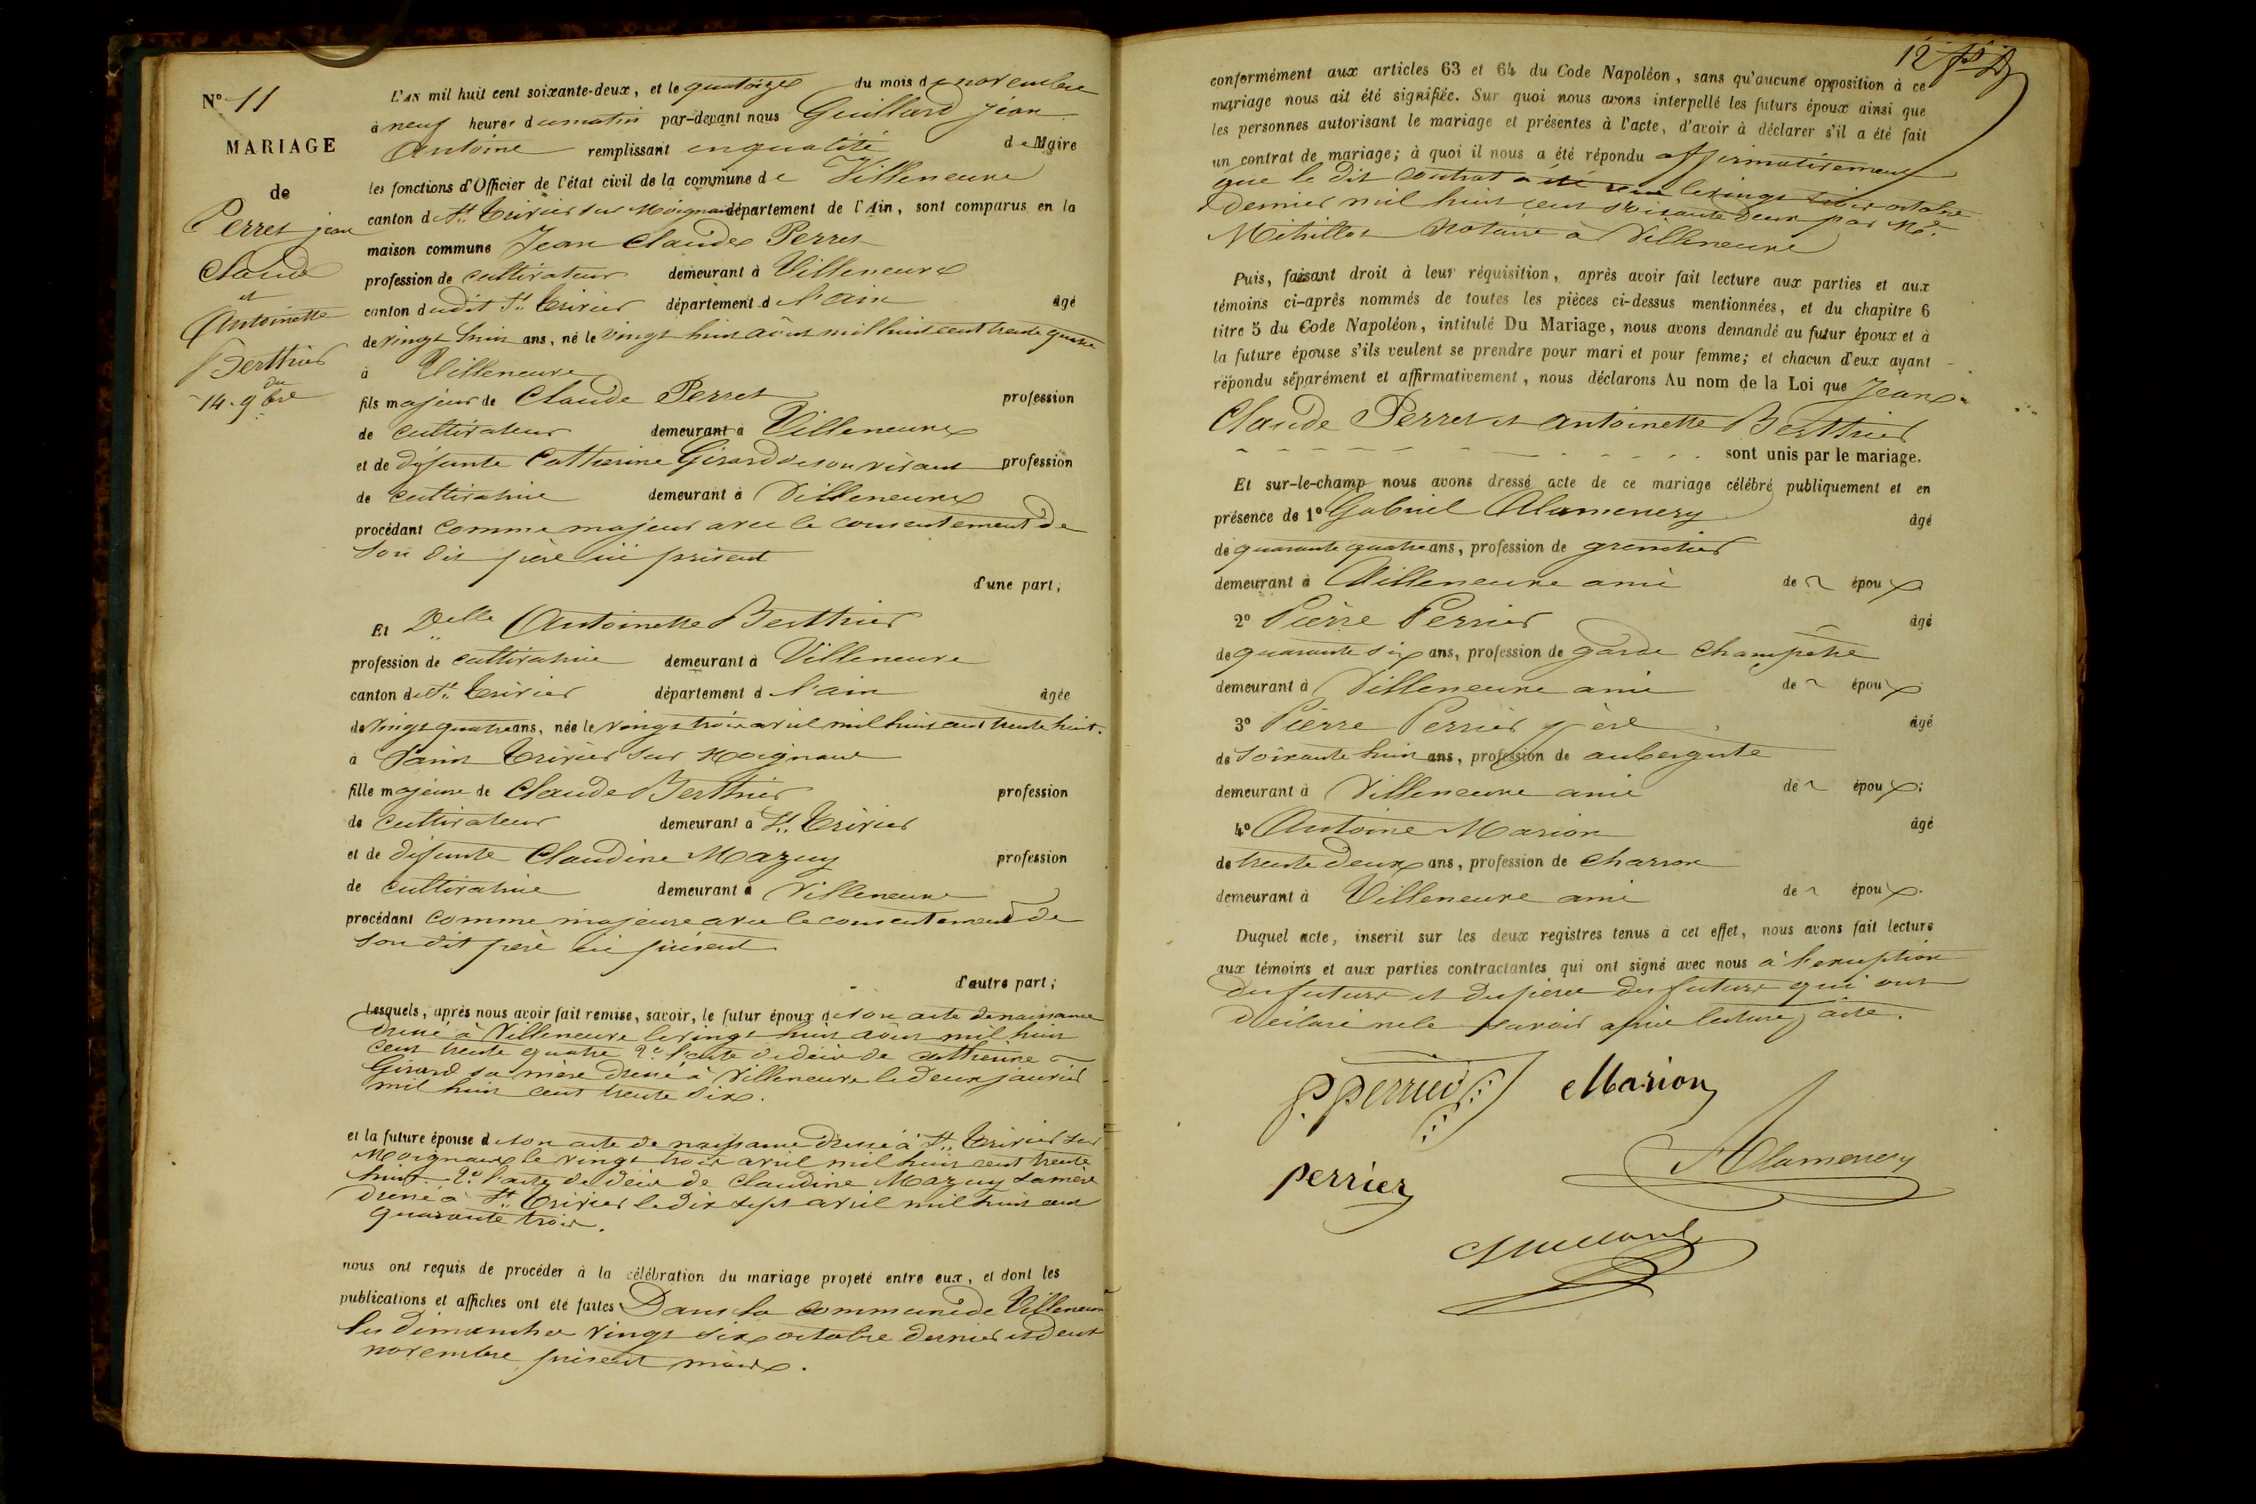 N° 11
MARIAGE
de
Perret jean
Claude
et
Antoinette
Berthier
du
14. 9bre
L'AN mil huit cent soixante-deux, et le quatorze du mois de novembre
à neuf heures du matin par-devant nous Guillard Jean
Antoine remplissant en qualité de Maire
les fonctions d'Officier de l'état civil de la commune de Villeneuve
canton de St. Trivier sur Moignans département de l'Ain, sont comparus en la
maison commune Jean Claude Perret
profession de cultivateur demeurant à Villeneuve
canton dudit St. Trivier département de l'ain âgé
de vingt huit ans, né le vingt huit août mil huit cent trente quatre
à Villeneuve
fils majeur de Claude Perret profession
de cultivateur demeurant à Villeneuve
et de défunte Catherine Girard de son vivant profession
de cultivatrice demeurant à Villeneuve
procédant comme majeur avec le consentement de
son dit père ici présent
d'une part;
Et Delle Antoinette Berthier
profession de cultivatrice demeurant à Villeneuve
canton de St. Trivier département d l'ain âgée
de vingt quatre ans, née le vingt trois avril mil huit cent trente huit.
à Saint Trivier sur Moignans
fille majeure de Claude Berthier profession
de cultivateur demeurant à St. Trivier
et de défunte Claudine Mazuy profession
de cultivatrice demeurant à Villeneuve
procédant comme majeure avec le consentement de
son dit père ici présent
d'autre part;
Lesquels, après nous avoir fait remise, savoir, le futur époux de son acte de naissance
dressé à Villeneuve le vingt huit août mil huit
cent trente quatre 2° l'acte de décès de Catherine
Girard sa mère dressé à Villeneuve le deux janvier
mil huit cent trente six.
et la future épouse de son acte de naissance dressé à St. Trivier sur
Moignans le vingt trois avril mil huit cent trente
huit. 2° l'acte de décès de Claudine Mazuy sa mère
dressé à St. Trivier le dix sept avril mil huit cent
quarante trois.
nous ont requis de procéder à la célébration du mariage projeté entre eux, et dont les
publications et affiches ont été faites Dans la commune de Villeneuve
les dimanches vingt six octobre dernier et deux
novembre présent mois.
12
conformément aux articles 63 et 64 du Code Napoléon, sans qu'aucune opposition à ce
mariage nous ait été signifiée. Sur quoi nous avons interpellé les futurs époux ainsi que
les personnes autorisant le mariage et présentes à l'acte, d'avoir à déclarer s'il a été fait
un contrat de mariage; à quoi il nous a été répondu affirmativement
que le dit contrat a été reçu le vingt trois octobre
dernier mil huit cent soixante deux par Me.
Mitillot Notaire à Villeneuve
Puis, faisant droit à leur réquisition, après avoir fait lecture aux parties et aux
témoins ci-après nommés de toutes les pièces ci-dessus mentionnées, et du chapitre 6
titre 5 du Code Napoléon, intitulé Du Mariage, nous avons demandé au futur époux et à
la future épouse s'ils veulent se prendre pour mari et pour femme; et chacun d'eux ayant
répondu séparément et affirmativement, nous déclarons Au nom de la Loi que Jean
Claude Perret et Antoinette Berthier
sont unis par le mariage.
Et sur-le-champ nous avons dressé acte de ce mariage célébré publiquement et en
présence de 1° Gabriel Alamenery âgé
de quarante quatre ans, profession de
demeurant à Villeneuve ami de époux
2° Pierre Perrier âgé
de quarante six ans, profession de garde champêtre
demeurant à Villeneuve ami de époux
3° Pierre Perrier père âgé
de soixante huit ans, profession de aubergiste
demeurant à Villeneuve ami de époux;
4° Antoine Marion âgé
de trente deux ans, profession de charron
demeurant à Villeneuve ami de époux.
Duquel acte, inscrit sur les deux registres tenus à cet effet, nous avons fait lecture
aux témoins et aux parties contractantes qui ont signé avec nous à l'exception
des futurs et des pères des futurs qui ont
déclaré ne le savoir après lecture acte.
P. Perrier Marion
Alamenery
perrier
Guillard